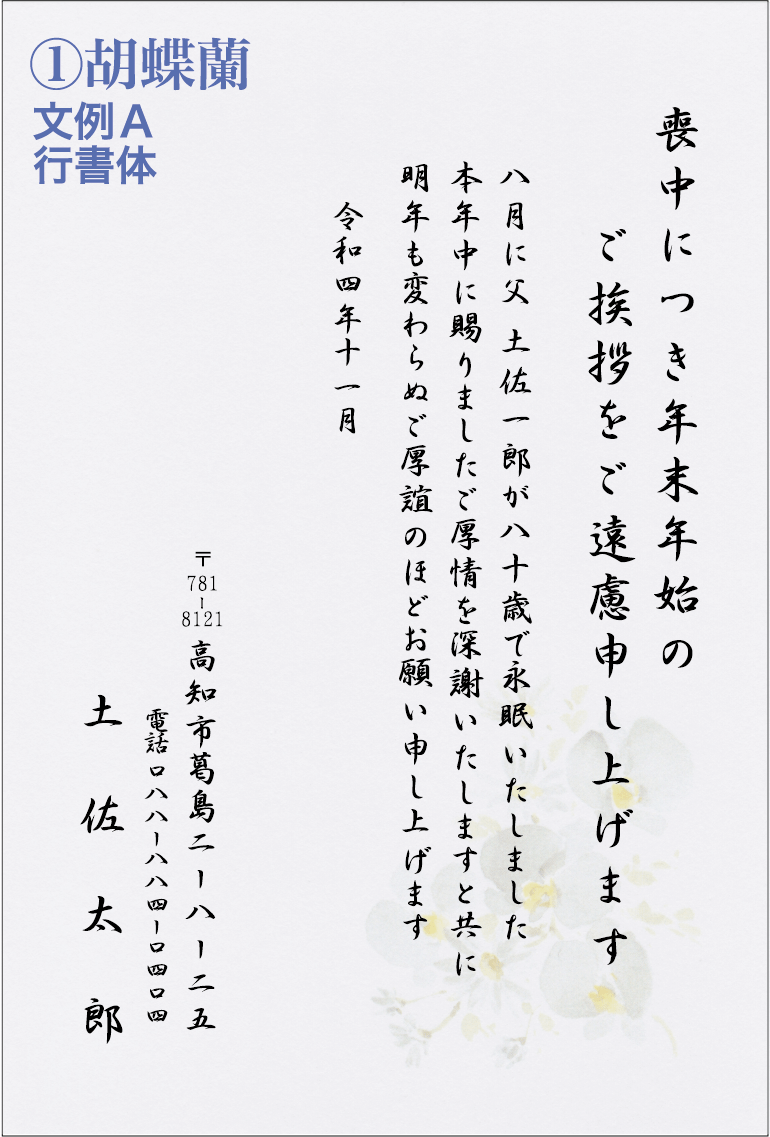 ①胡蝶蘭
文例A
行書体
喪中につき年末年始の
ご挨拶をご遠慮申し上げます
八月に父 土佐一郎が八十歳で永眠いたしました
本年中に賜りましたご厚情を深謝いたしますと共に
明年も変わらぬご厚誼のほどお願い申し上げます
令和四年十一月
〒781-8121 高知市葛島二ー八ー二五
電話 〇八八ー八八四ー〇四〇四
土佐太郎